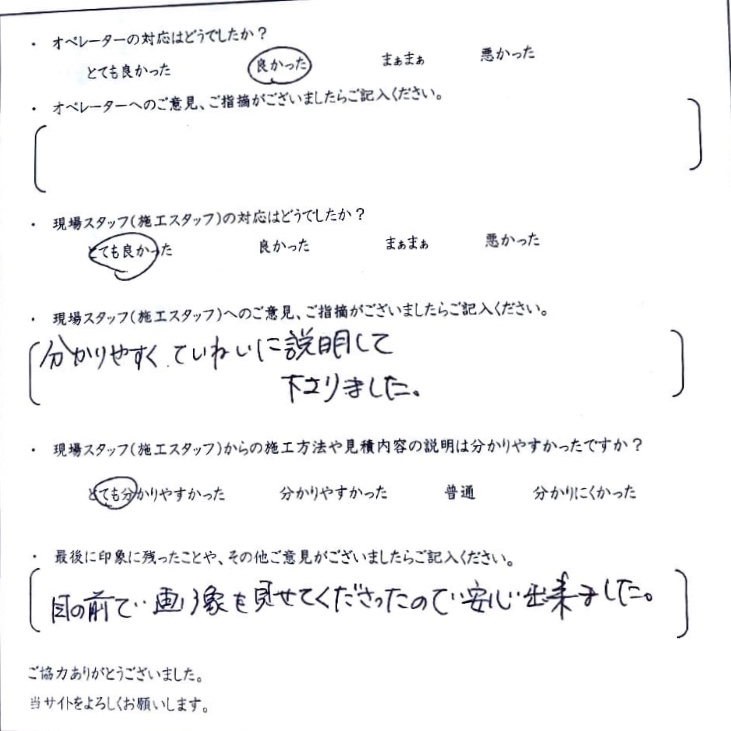 ・ オペレーターの対応はどうでしたか？
とても良かった 良かった まぁまぁ 悪かった
・ オペレーターへのご意見、ご指摘がございましたらご記入ください。
・ 現場スタッフ(施工スタッフ)の対応はどうでしたか？
とても良かった 良かった まぁまぁ 悪かった
・ 現場スタッフ(施工スタッフ)へのご意見、ご指摘がございましたらご記入ください。
分かりやすく、ていねいに説明して
下さりました。
・ 現場スタッフ(施工スタッフ)からの施工方法や見積内容の説明は分かりやすかったですか？
とても分かりやすかった 分かりやすかった 普通 分かりにくかった
・ 最後に印象に残ったことや、その他ご意見がございましたらご記入ください。
目の前で画像を見せてくださったので安心出来ました。
ご協力ありがとうございました。
当サイトをよろしくお願いします。